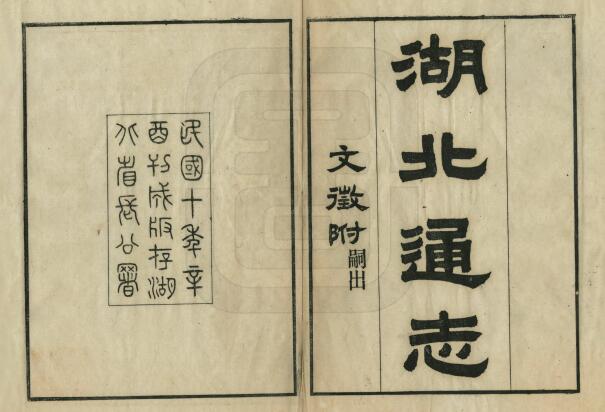 湖北通志
文徵附嗣出
民國十年辛
酉刊成版存湖
北省長公署